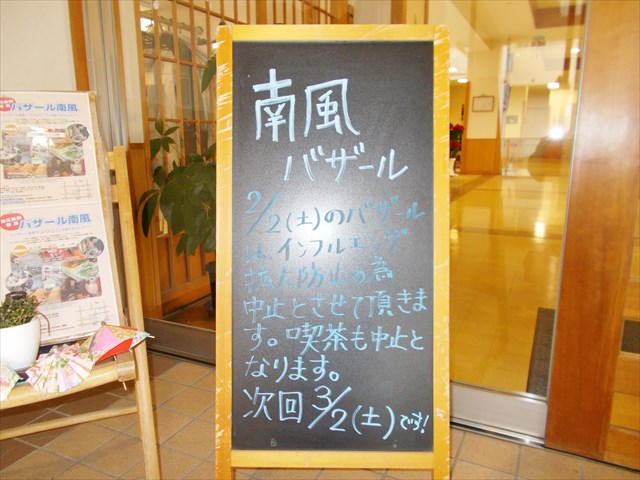 南風
バザール
2/2(土)のバザール
は、インフルエンザ
拡大防止の為
中止とさせて頂きま
す。喫茶も中止と
なります。
次回 3/2(土)です!
バザール南風
バザール南風